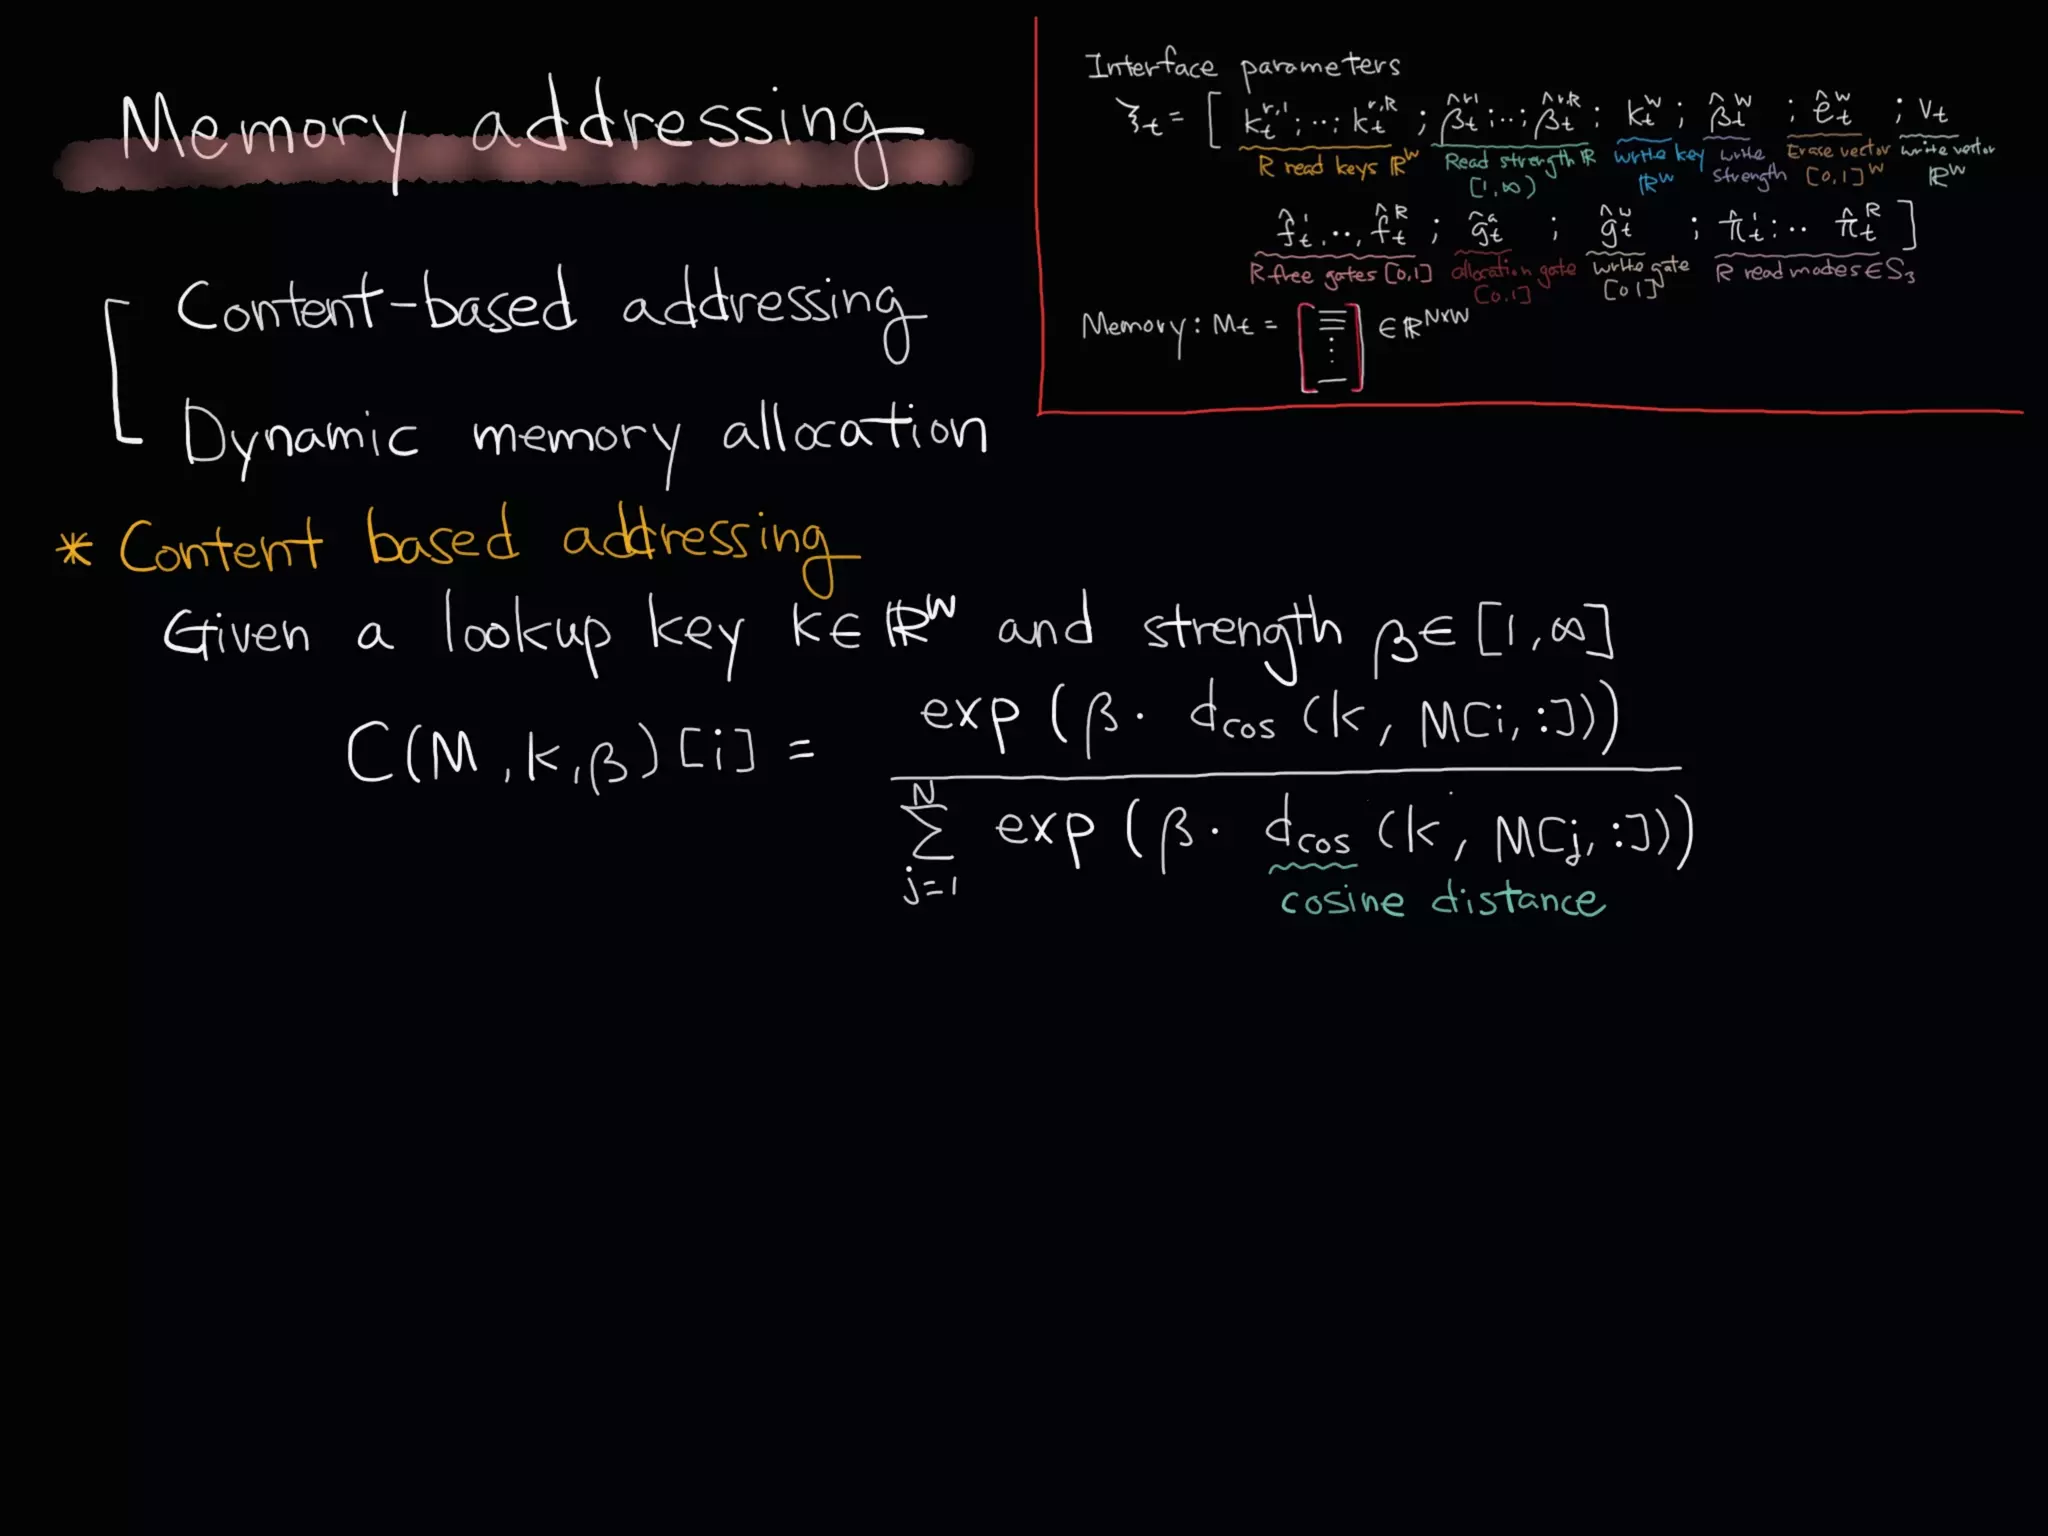 Memory addressing
Content-based addressing
Dynamic memory allocation
Interface parameters
ξt = [ kt^r,1 ; ‥ ; kt^r,R ; β̂t^r,1 ; ‥ ; β̂t^r,R ; kt^w ; β̂t^w ; êt^w ; Vt
R read keys ℝ^W Read strength ℝ write key write Erase vector write vector
[1, ∞) ℝ^W strength [0,1]^W ℝ^W
f̂t^1, ‥, f̂t^R ; ĝt^a ; ĝt^w ; π̂t^1 : ‥ π̂t^R ]
R free gates [0,1] allocation gate write gate R read modes ∈ S3
[0,1] [0 1]
Memory : Mt = [ ] ∈ ℝ^N×W
* Content based addressing
Given a lookup key k ∈ ℝ^W and strength β ∈ [1, ∞]
exp ( β · dcos (k, M[i, :]))
C(M, k, β)[i] =
N
∑ exp ( β · dcos (k, M[j, :]))
j=1
cosine distance